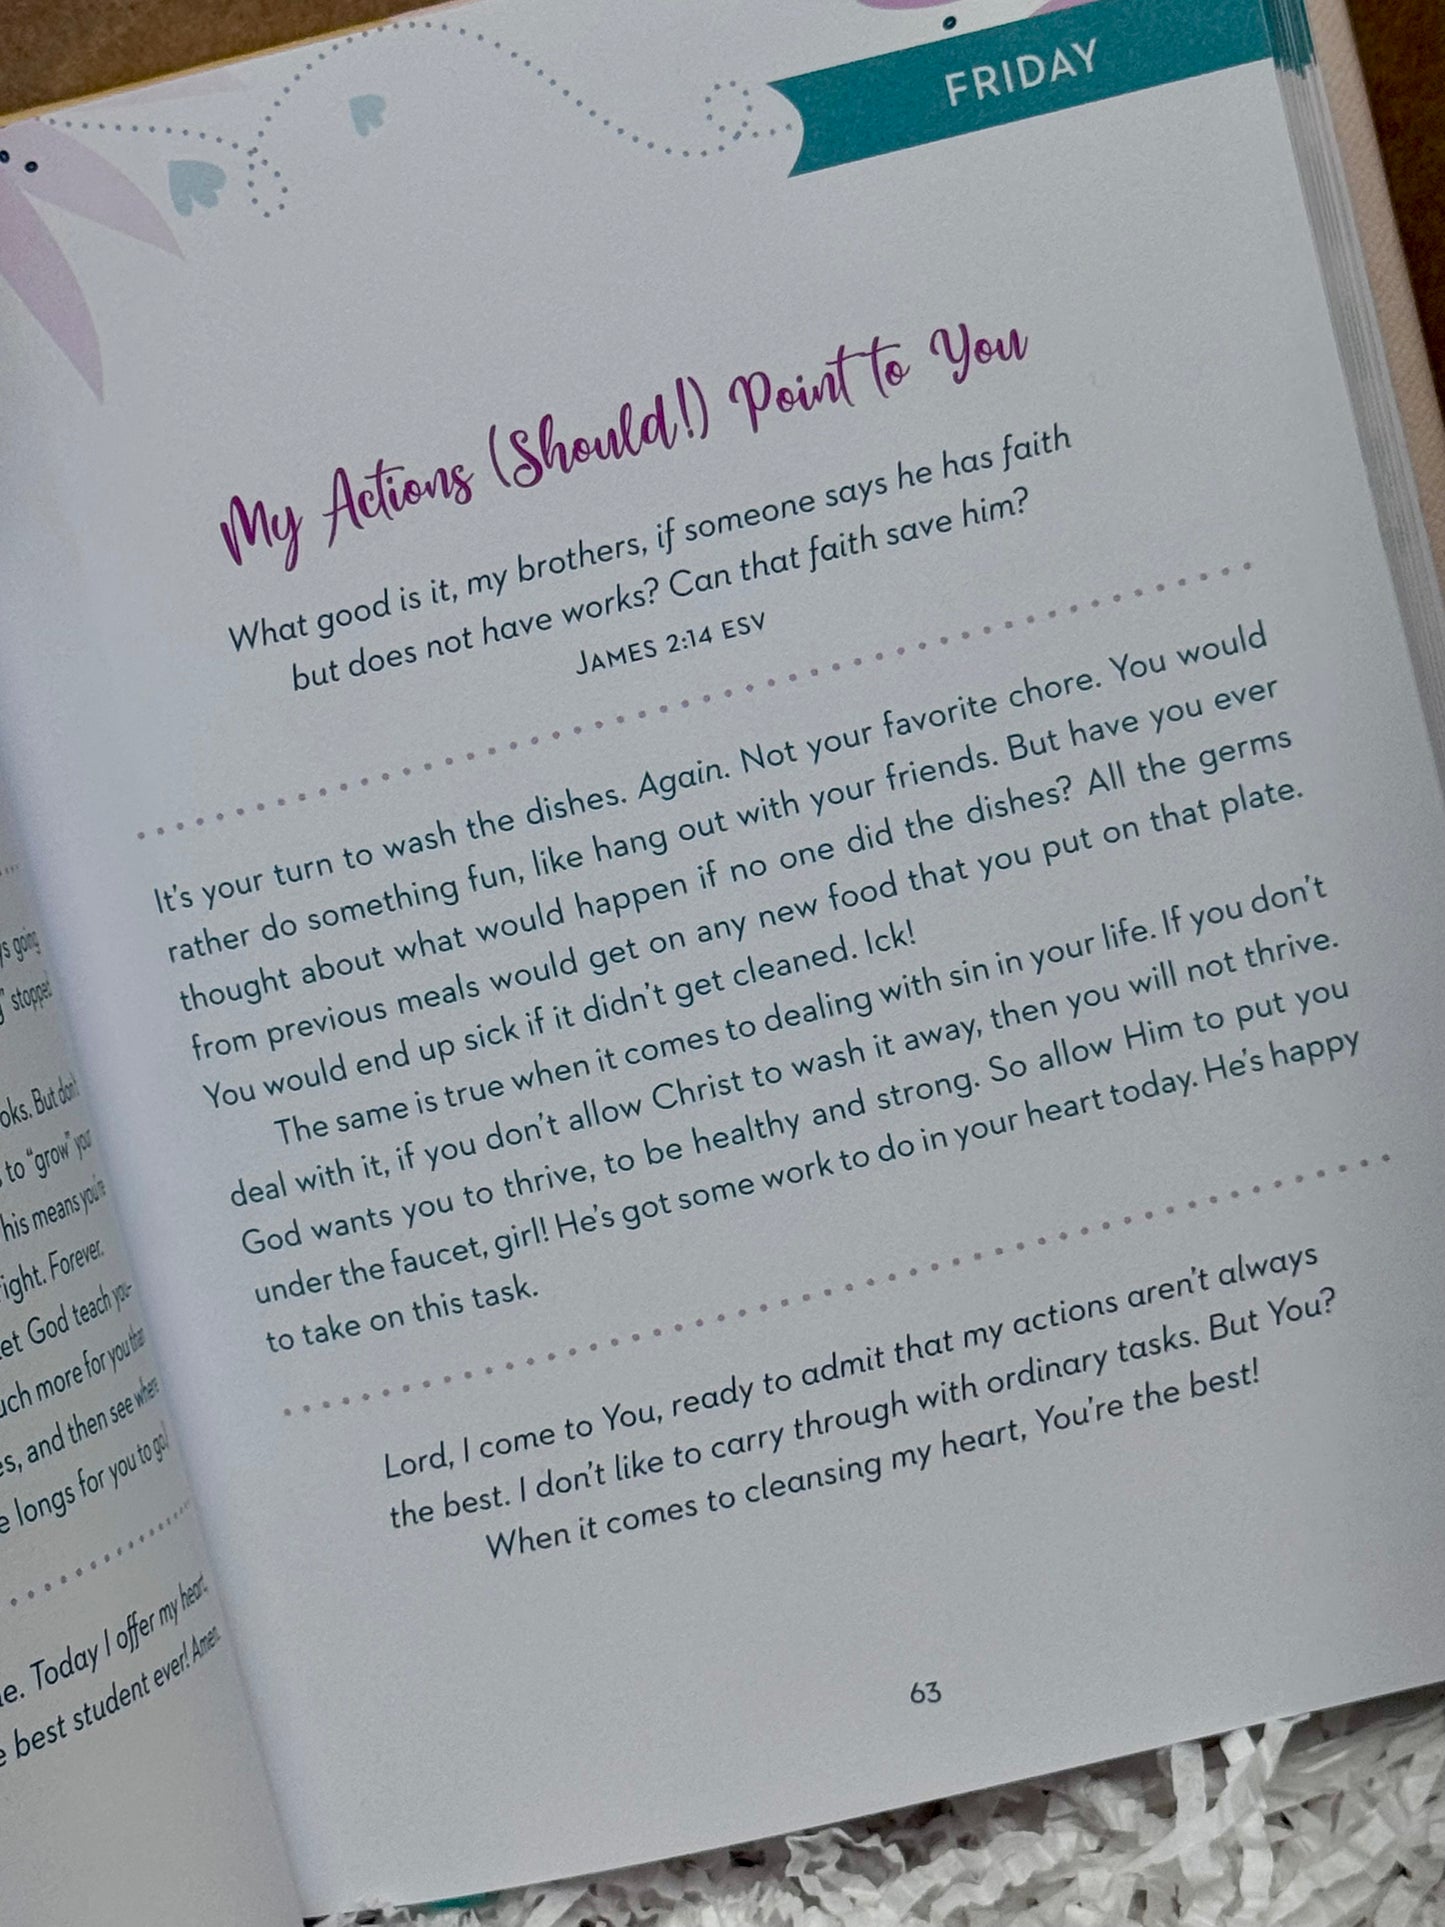 s going
" stopped
oks. But don't
to "grow" your
his means you're
ight. Forever.
et God teach you-
uch more for you than
es, and then see where
e longs for you to go!
e. Today I offer my heart.
e best student ever! Amen.
FRIDAY
My Actions (Should!) Point to You
What good is it, my brothers, if someone says he has faith
but does not have works? Can that faith save him?
JAMES 2:14 ESV
It's your turn to wash the dishes. Again. Not your favorite chore. You would
rather do something fun, like hang out with your friends. But have you ever
thought about what would happen if no one did the dishes? All the germs
from previous meals would get on any new food that you put on that plate.
You would end up sick if it didn't get cleaned. Ick!
The same is true when it comes to dealing with sin in your life. If you don't
deal with it, if you don't allow Christ to wash it away, then you will not thrive.
God wants you to thrive, to be healthy and strong. So allow Him to put you
under the faucet, girl! He's got some work to do in your heart today. He's happy
to take on this task.
Lord, I come to You, ready to admit that my actions aren't always
the best. I don't like to carry through with ordinary tasks. But You?
When it comes to cleansing my heart, You're the best!
63